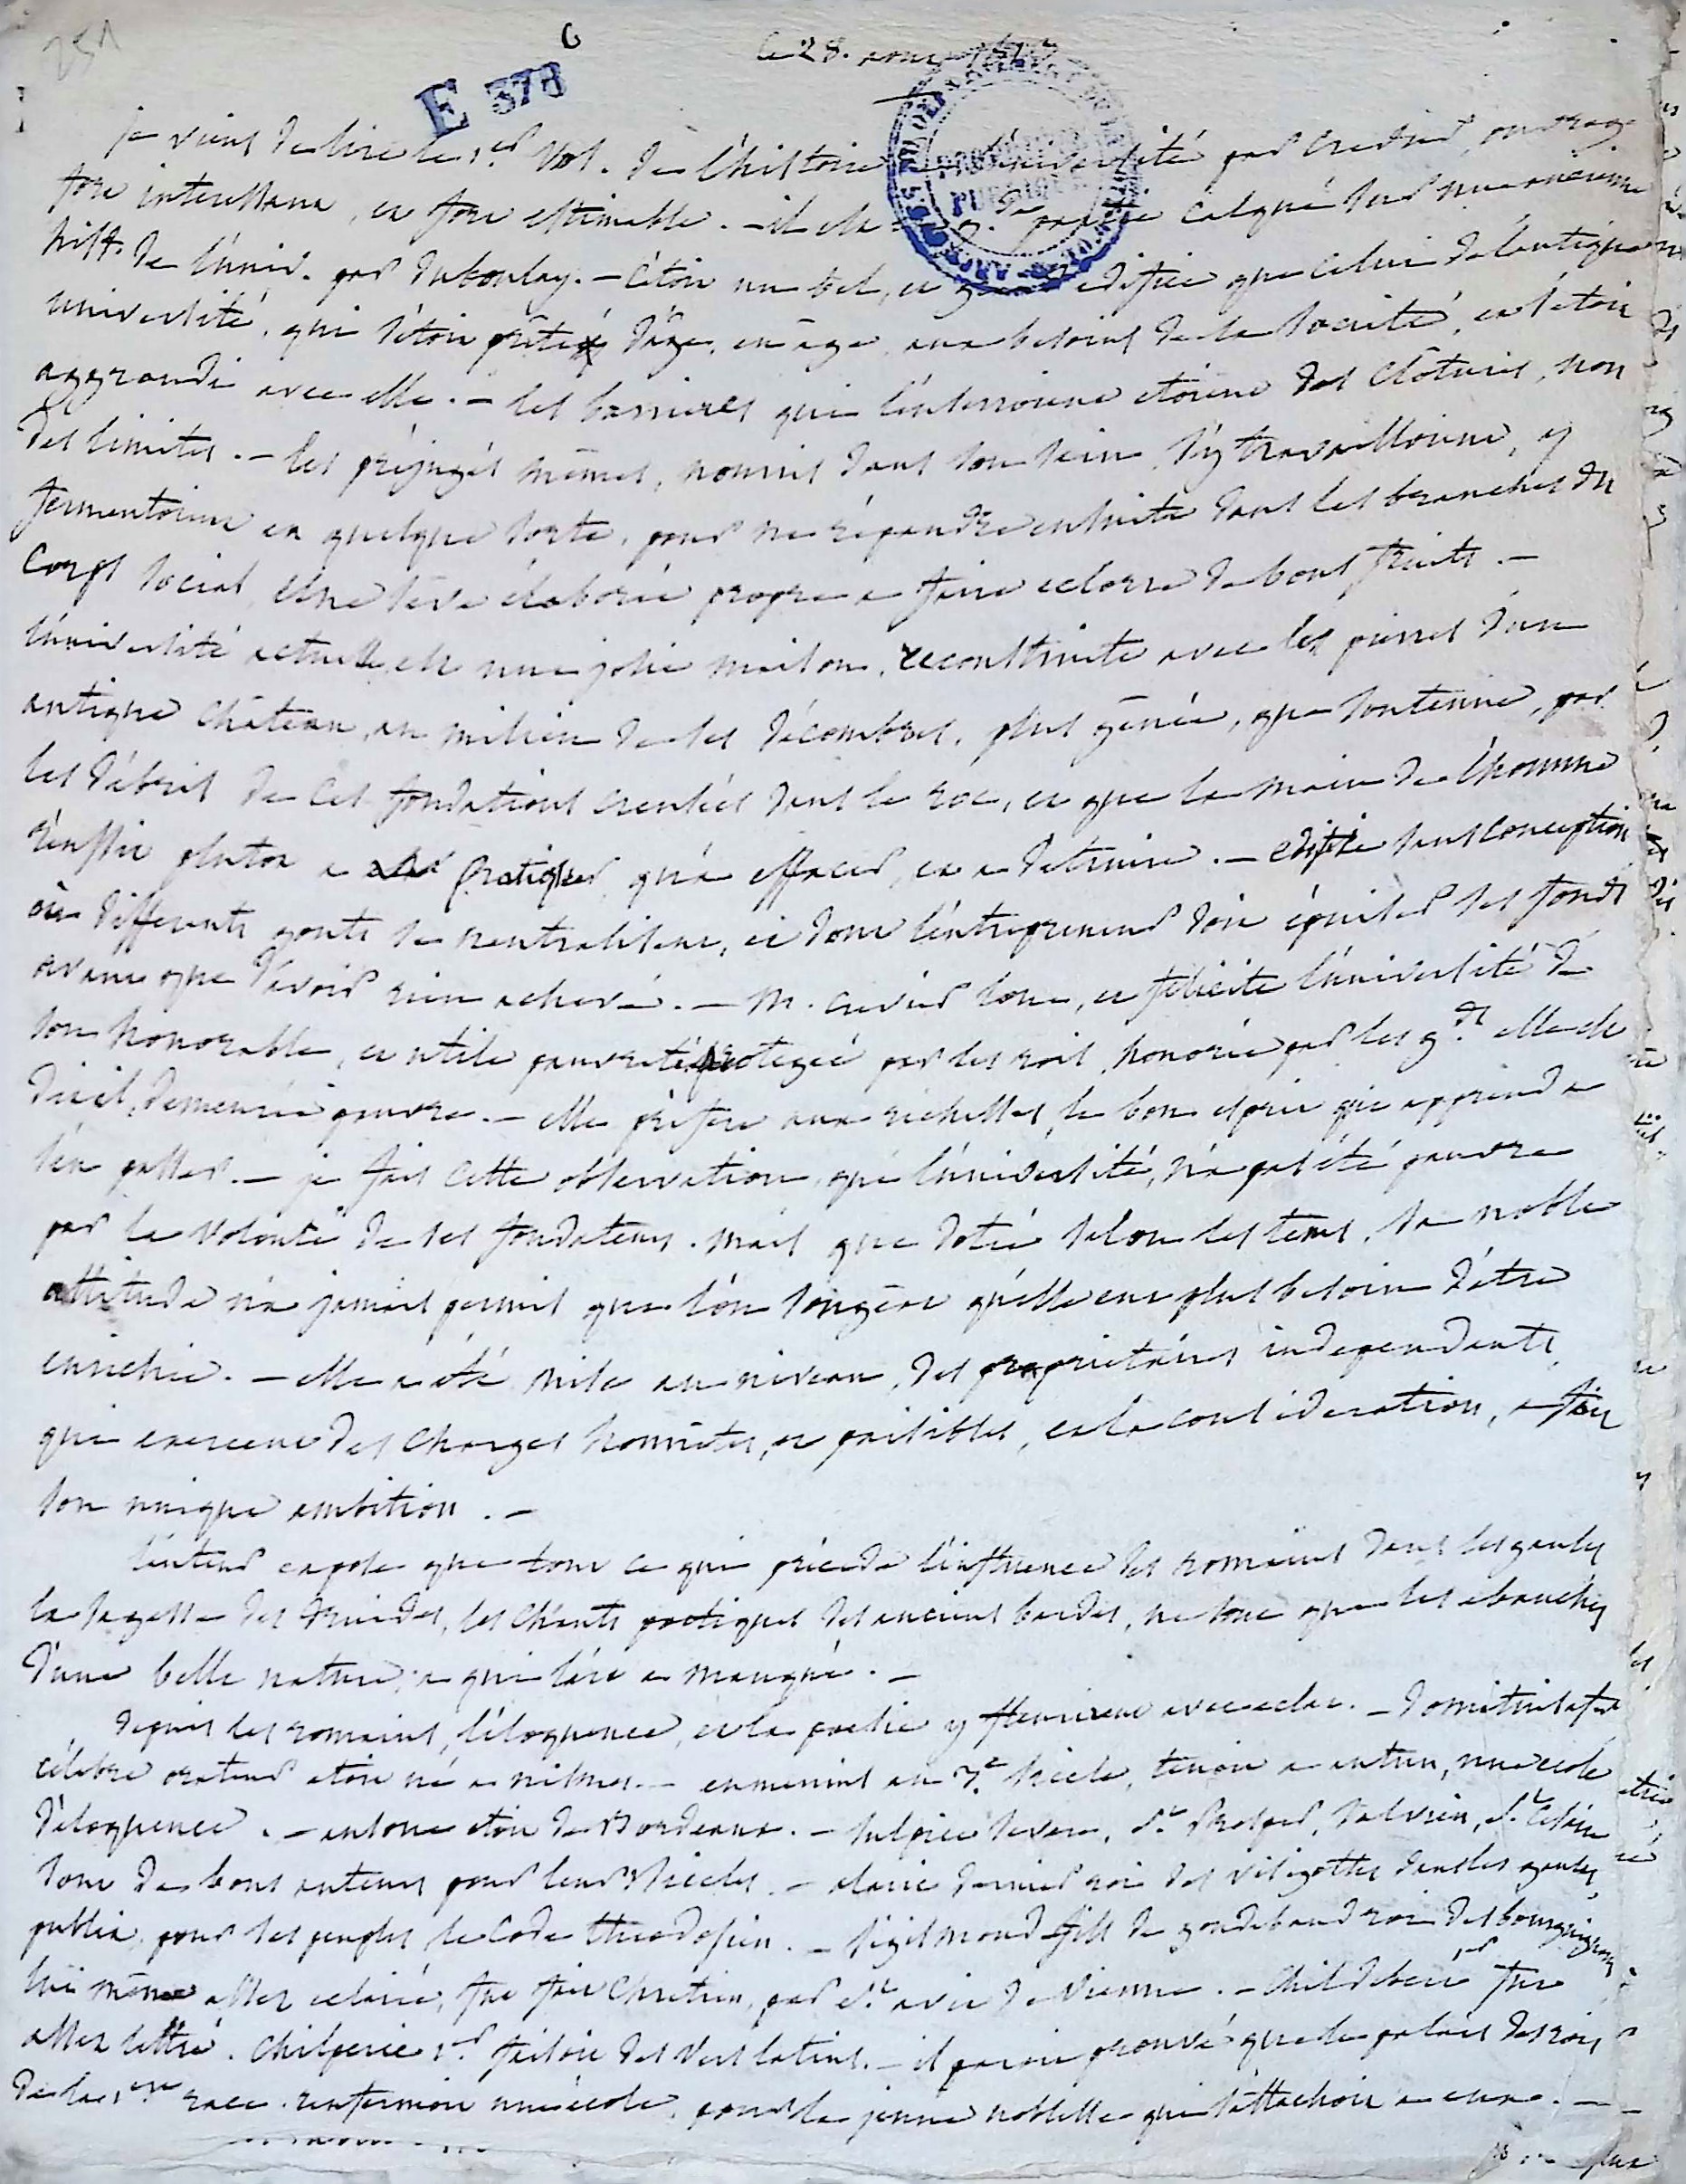 251
E 378
6
le 28.
je viens de lire le 1er Vol. de l'histoire de l'université par Crevier, ouvrage
fort interessant, et fort estimable. - il est en g.de partie calqué sur une ancienne
hist. de l'univ. par Duboulay. - C'étoit un bel, et grand edifice que celui de l'antique
université, qui s'étoit prêtée d'âge, en âge, aux besoins de la société, et s'étoit
aggrandi avec elle. - les barrieres qui l'enserroient etoient des clôtures, non
des limites. - les préjugés mêmes, nourris dans son sein, s'y travailloient, y
fermentoient en quelque sorte, pour ne répandre ensuite dans les branches du
corps social, qu'une sève élaborée propre a faire eclorre de bons fruits. -
l'université actuelle est une jolie maison, reconstruite avec les pierres d'un
antique château, au milieu de ses décombres, plus gênée, que soutenue, par
les débris de ces fondations creusées dans le roc, et que la main de l'homme
réussit plutot a pratiquer, qu'a effacer, et a detruire. - edifice sans conception
où differents gouts se neutralisent, et dont l'entrepreneur doit épuiser ses fonds
avant que d'avoir rien achevé. - M. Crevier loue, et félicite l'université de
son honorable, et utile pauvreté protegée par les rois, honorée par les g.ds elle est
dit-il, demeurée pauvre. - elle préfère aux richesses, le bon esprit qui apprend a
s'en passer. - je fais cette observation, que l'université, n'a pas été pauvre
par la volonté de ses fondateurs. mais que dotée selon les tems, sa noble
attitude n'a jamais permis que l'on songeat qu'elle eut plus besoin d'être
enrichie. - elle a été mise au niveau, des propriétaires independants,
qui exercent des charges honnêtes, et paisibles, et la consideration, a fait
son unique ambition. -
l'auteur expose que tout ce qui précéda l'influence des romains dans les gaules
la sagesse des druides, les chants poëtiques des anciens bardes, ne sont que les ebauches
d'une belle nature, a qui l'art a manqué. -
depuis les romains, l'éloquence, et la poesie y fleurirent avec eclat. - domitius afer
célèbre orateur etoit né a nismes. - eumenius au 3.e siecle, tenoit a autun, une ecole
d'éloquence. - ausone etoit de Bordeaux. - Sulpice severe, St. Prosper, Salvien, St. Césaire
sont de bons auteurs pour leurs siecles. - alaric dernier roi des visigoths dans les gaules
publia, pour ses peuples le Code theodosien. - Sigismond fils de gondebaud roi des bourguignons
lui même assez eclairé, fut fait Chretien, par St. avit de Vienne. - Childebert 1er fut
assez lettré. Chilperic 1er faisoit des vers latins. - il paroit prouvé que le palais des rois
de la 1ere race renfermoit une ecole, pour la jeune noblesse qui s'attachoit a eux. -